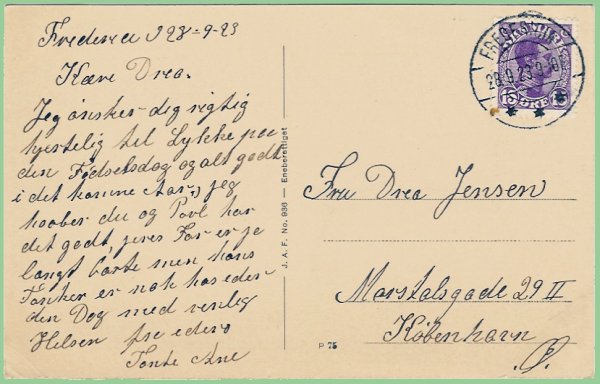 Fredericia d 28-9-23
Kære Drea.
Jeg ønsker dig rigtig
hjertelig til Lykke paa
den Fødselsdag og alt godt
i det komme Aar, jeg
haaber du og Povl har
det godt, jeres Far er jo
langt borte men hans
Tanker er nok hos eder
den Dag med venlig
Hilsen fra eders
Tante Ane
J. A. F. No. 936 — Eneberettiget
P 75
FREDERICIA
28.9.23.9-10
15 ØRE
Fru Drea Jensen
Marstalsgade 29 II
København
Ø.